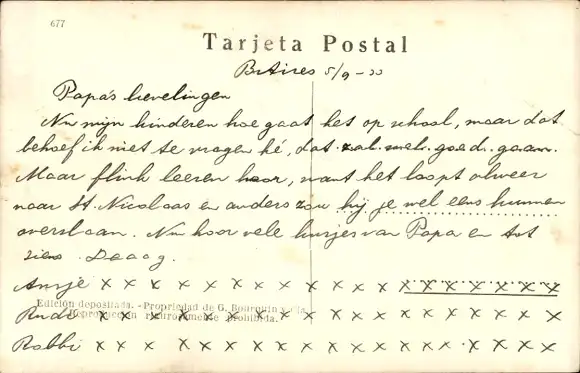 677
Tarjeta Postal
BsAires 5/9-33
Papa's lievelingen
Nu mijn kinderen hoe gaat het op school, maar dat
behoef ik niet te vragen hé, dat zal wel goed gaan.
Maar flink leeren hoor, want het loopt alweer
naar St. Nicolaas en anders zou hij je wel eens kunnen
overslaan. Nu hoor vele kusjes van Papa en tot
ziens. Daaag.
Ansje x x x x x x x x x x x x x x x x x x x x
Edición depositada. - Propiedad de G. Bourquin y Cia.
Reproducción rigurosamente prohibida.
Rudi x x x x x x x x x x x x x x x x x x x x
Robbi x x x x x x x x x x x x x x x x x x x x